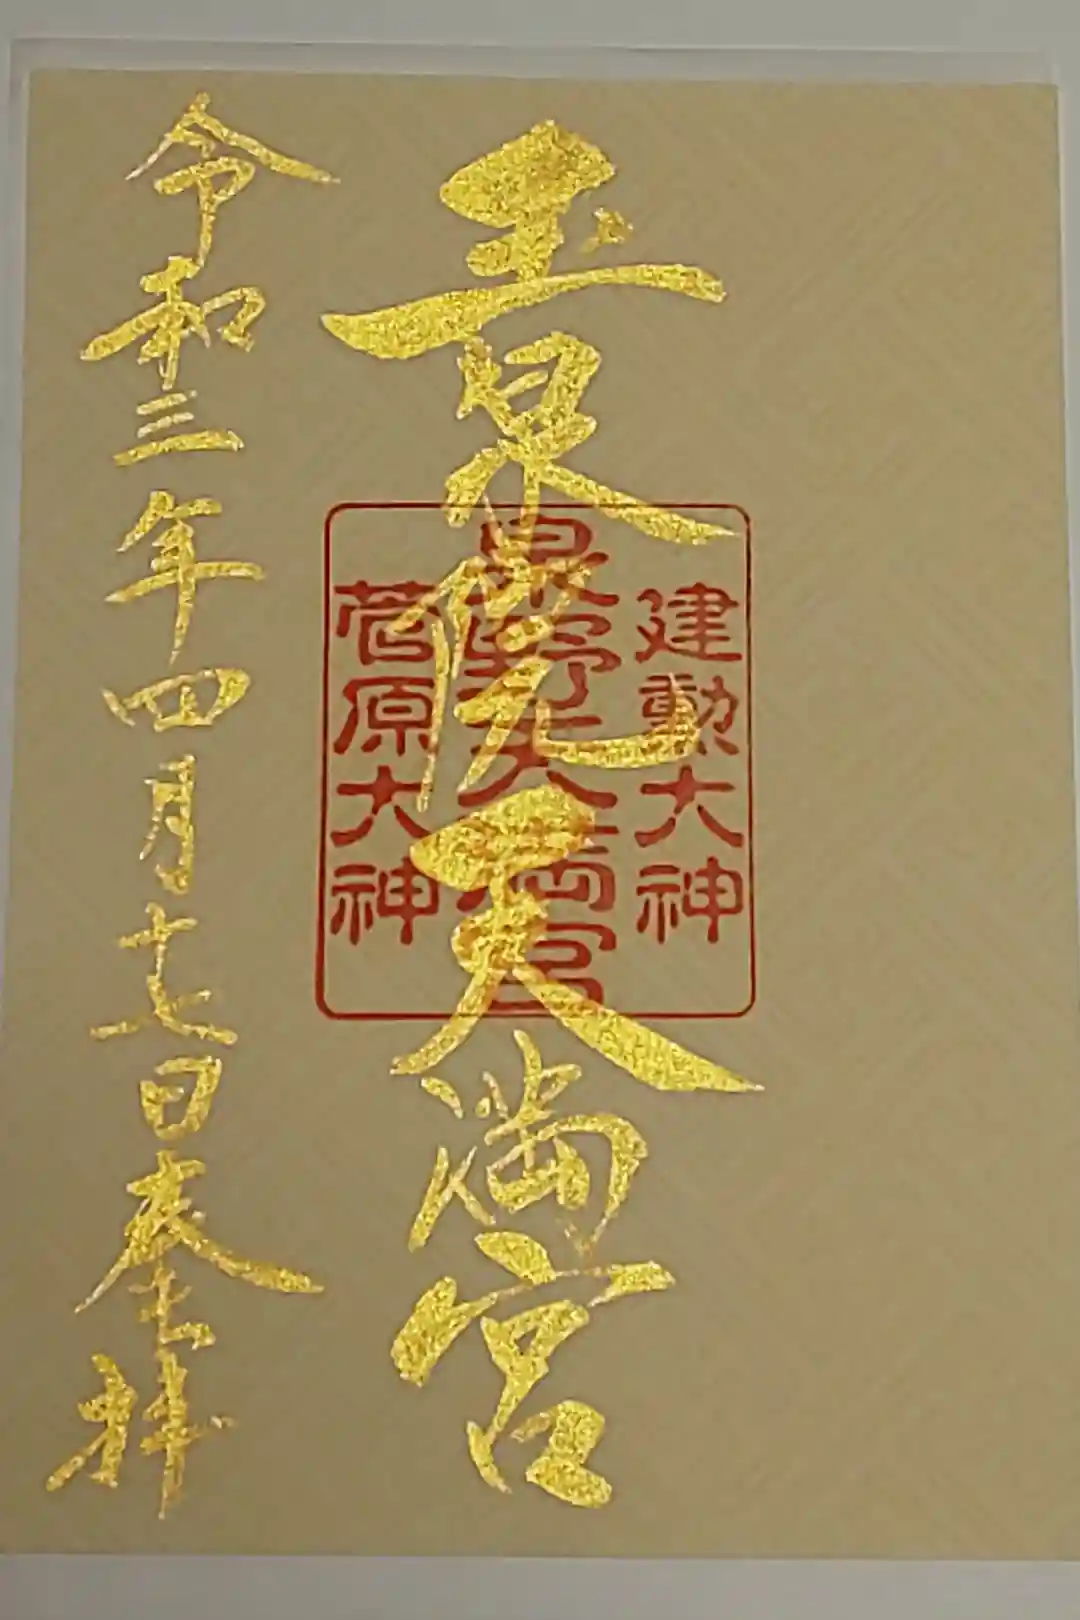 玉泉院天満宮
建勲大神
泉野天満宮
菅原大神
令和三年四月十七日奉拝